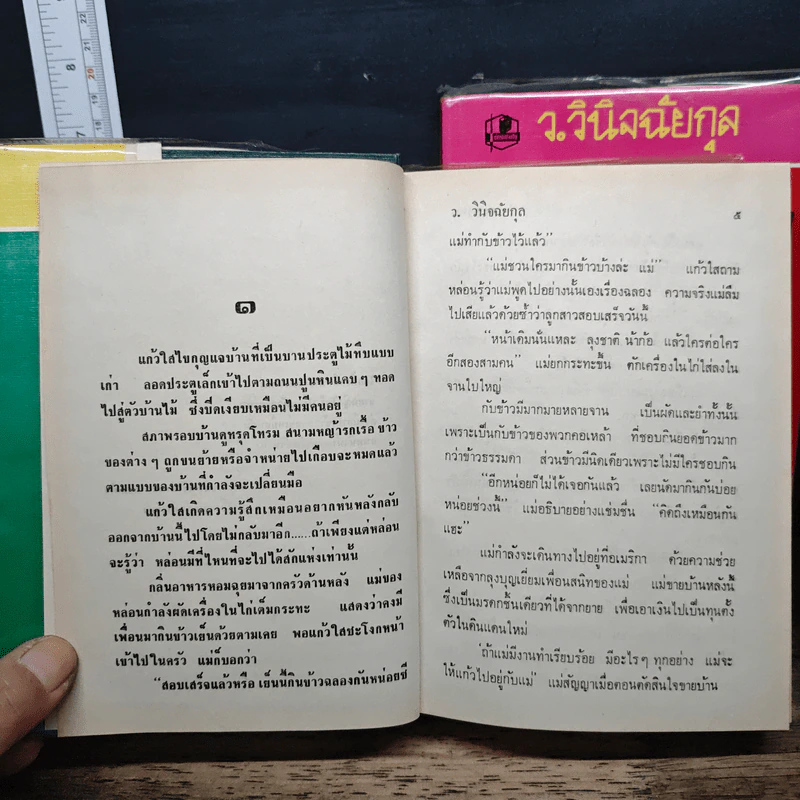 8
22
21
20
7
ว.วินิจฉัยกุล
๑
แก้วใสไขกุญแจบ้านที่เป็นบานประตูไม้ทึบแบบ
เก่า ลอดประตูเล็กเข้าไปตามถนนปูนหินแคบๆ ทอด
ไปสู่ตัวบ้านไม้ ซึ่งปิดเงียบเหมือนไม่มีคนอยู่
สภาพรอบบ้านดูทรุดโทรม สนามหญ้ารกเรื้อ ข้าว
ของต่างๆ ถูกขนย้ายหรือจำหน่ายไปเกือบจะหมดแล้ว
ตามแบบของบ้านที่กำลังจะเปลี่ยนมือ
แก้วใสเกิดความรู้สึกเหมือนอยากหันหลังกลับ
ออกจากบ้านนี้ไปโดยไม่กลับมาอีก......ถ้าเพียงแต่หล่อน
จะรู้ว่า หล่อนมีที่ไหนที่จะไปได้สักแห่งเท่านั้น
กลิ่นอาหารหอมฉุยมาจากครัวด้านหลัง แม่ของ
หล่อนกำลังผัดเครื่องในไก่เต็มกระทะ แสดงว่าคงมี
เพื่อนมากินข้าวเย็นด้วยตามเคย พอแก้วใสชะโงกหน้า
เข้าไปในครัว แม่ก็บอกว่า
“สอบเสร็จแล้วหรือ เย็นนี้กินข้าวฉลองกันหน่อยซี
ว. วินิจฉัยกุล ๕
แม่ทำกับข้าวไว้แล้ว”
“แม่ชวนใครมากินข้าวบ้างล่ะ แม่” แก้วใสถาม
หล่อนรู้ว่าแม่พูดไปอย่างนั้นเองเรื่องฉลอง ความจริงแม่ลืม
ไปเสียแล้วด้วยซ้ำว่าลูกสาวสอบเสร็จวันนี้
“หน้าเดิมนั่นแหละ ลุงชาติ น้าก้อ แล้วใครต่อใคร
อีกสองสามคน” แม่ยกกระทะขึ้น ตักเครื่องในไก่ใส่ลงใน
จานใบใหญ่
กับข้าวมีมากมายหลายจาน เป็นผัดและยำทั้งนั้น
เพราะเป็นกับข้าวของพวกคอเหล้า ที่ชอบกินยอดข้าวมาก
กว่าข้าวธรรมดา ส่วนข้าวมีนิดเดียวเพราะไม่มีใครชอบกิน
“อีกหน่อยก็ไม่ได้เจอกันแล้ว เลยนัดมากินกันบ่อย
หน่อยช่วงนี้” แม่อธิบายอย่างแช่มชื่น “คิดถึงเหมือนกัน
แฮะ”
แม่กำลังจะเดินทางไปอยู่ที่อเมริกา ด้วยความช่วย
เหลือจากลุงบุญเยี่ยมเพื่อนสนิทของแม่ แม่ขายบ้านหลังนี้
ซึ่งเป็นมรดกชิ้นเดียวที่ได้จากยาย เพื่อเอาเงินไปเป็นทุนตั้ง
ตัวในดินแดนใหม่
‘ถ้าแม่มีงานทำเรียบร้อย มีอะไรๆ ทุกอย่าง แม่จะ
ให้แก้วไปอยู่กับแม่’ แม่สัญญาเมื่อตอนตัดสินใจขายบ้าน